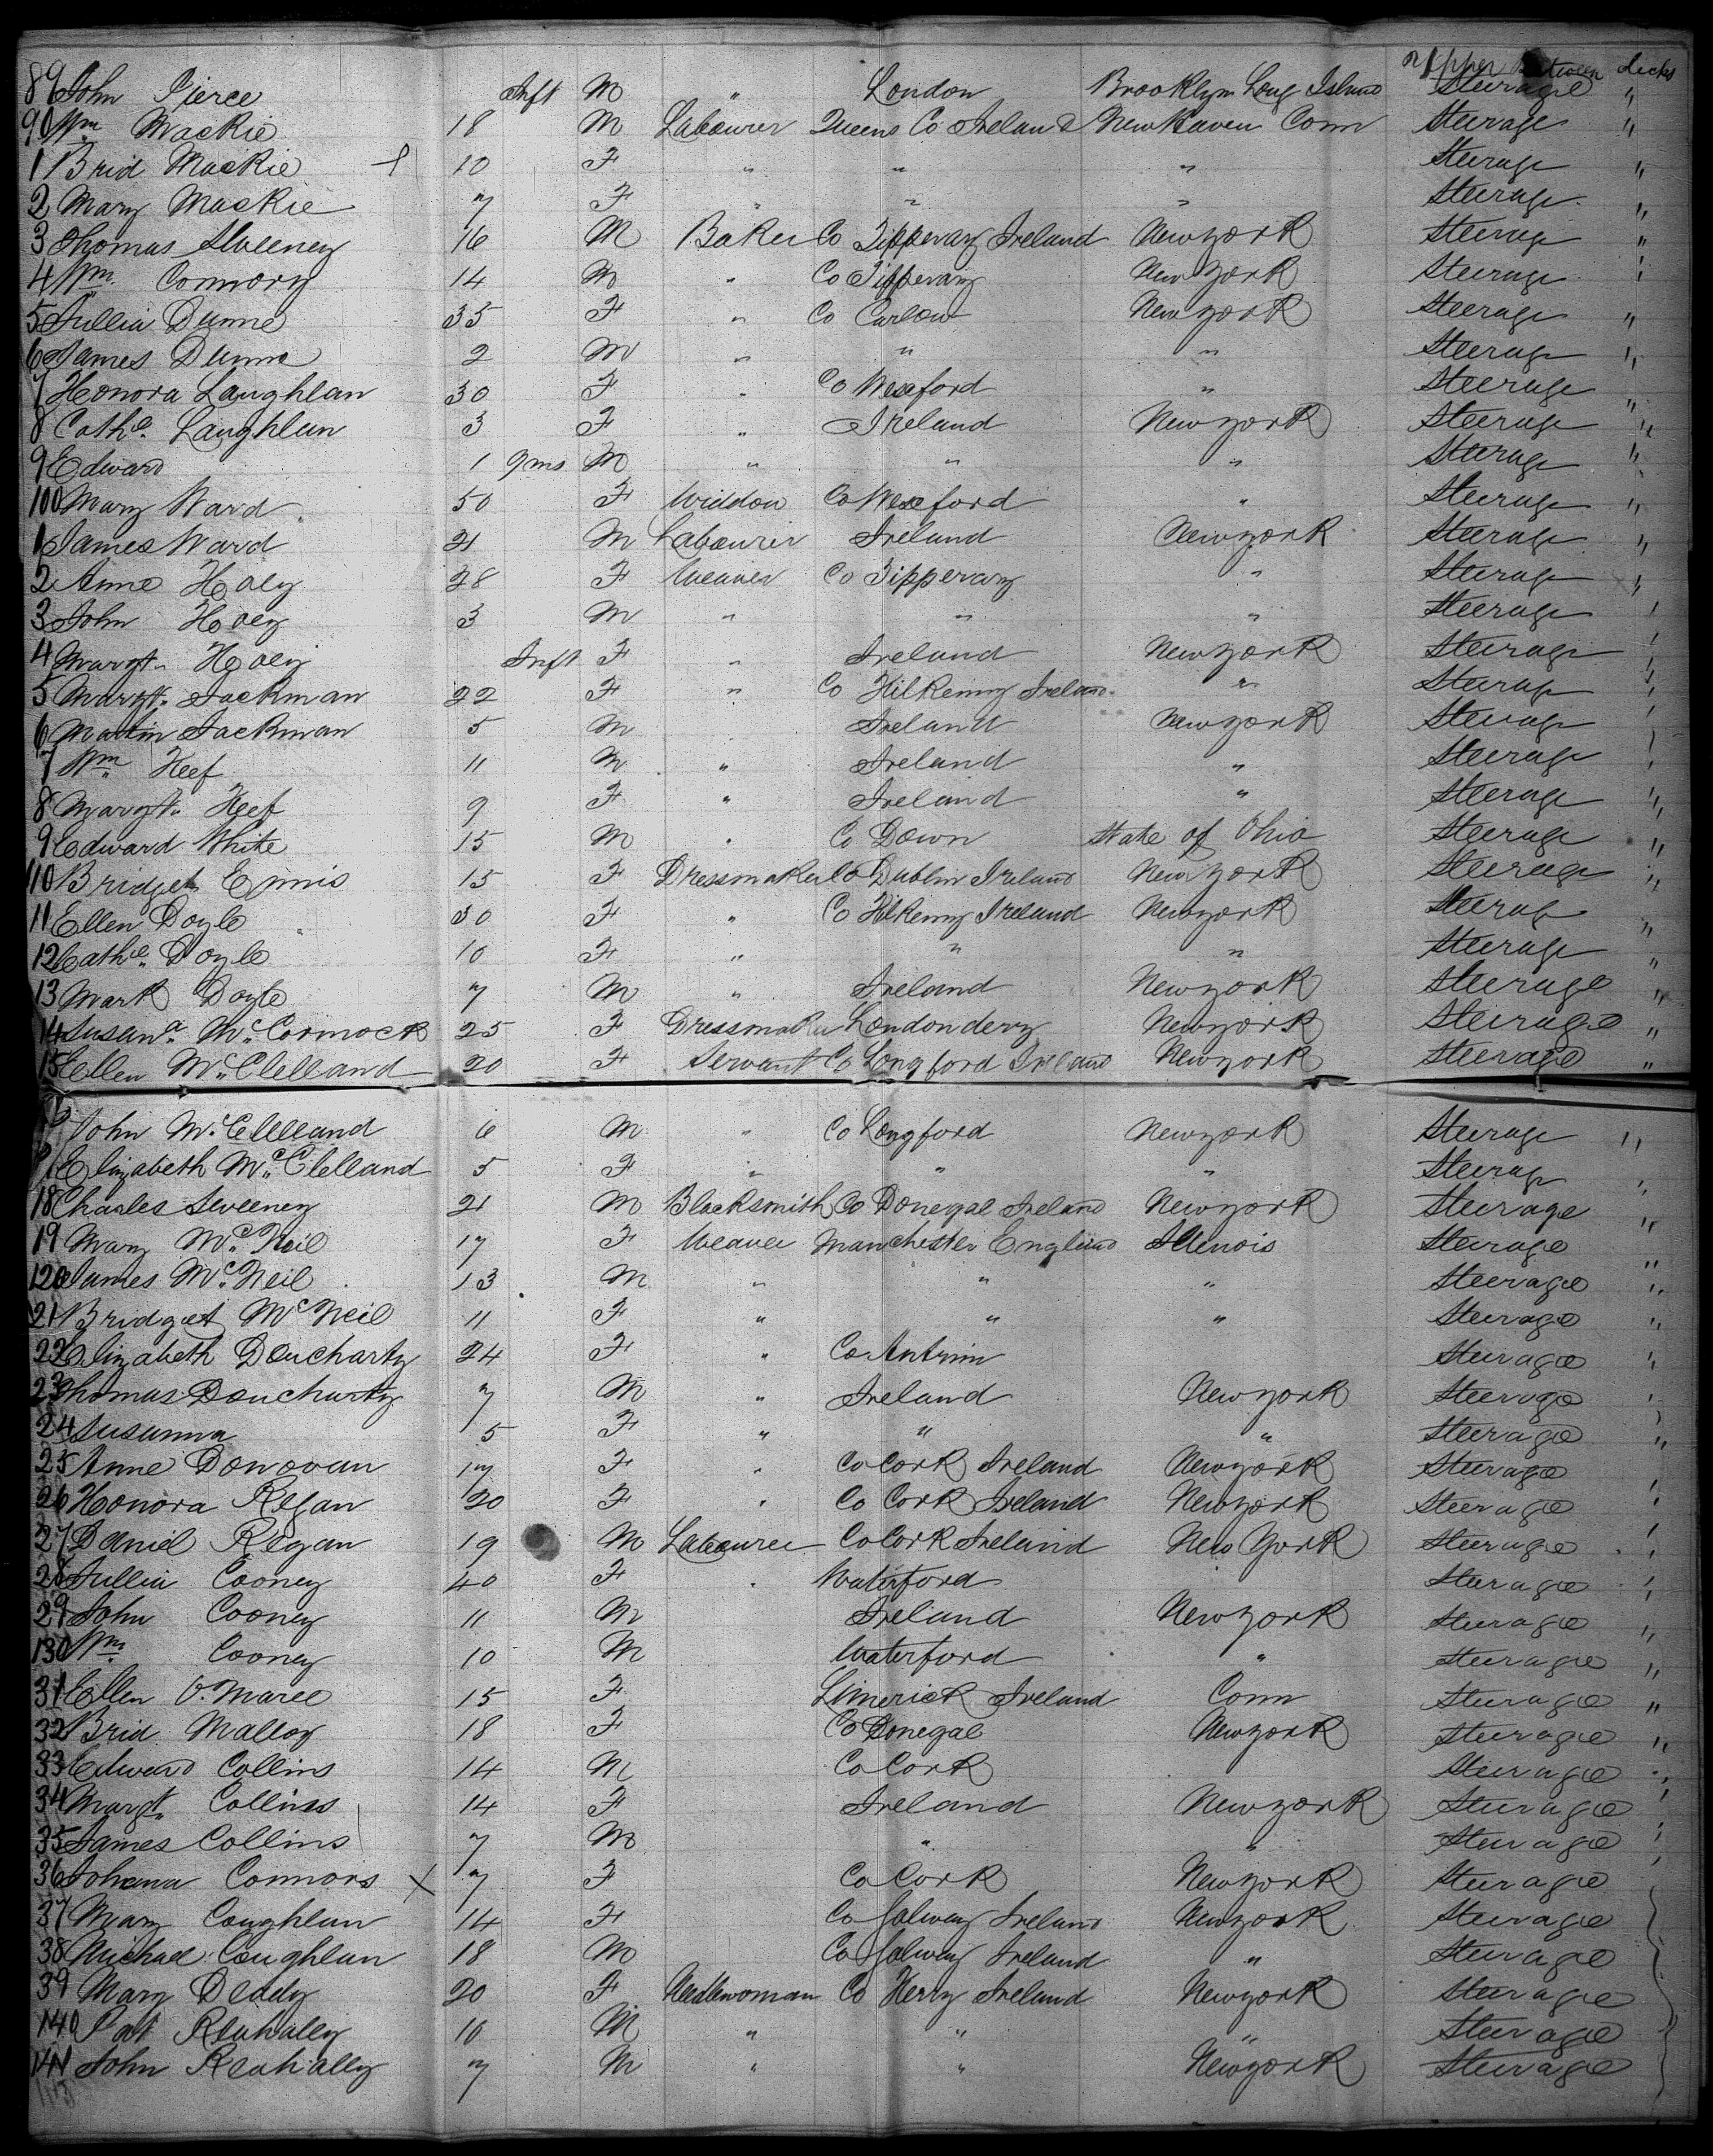 upper between decks
89 John Pierce Inft M " London Brooklyn Long Island Steerage "
90 Wm Mackie 18 M Labourer Queens Co Ireland New Haven Conn Steerage "
1 Brid Mackie 10 F " " " Steerage "
2 Mary Mackie 7 F " " " Steerage "
3 Thomas Sweeney 16 M Baker Co Tipperary Ireland New york Steerage "
4 Wm. Connory 14 M " Co Tipperary New York Steerage "
5 Jullia Dunne 35 F " Co Carlow New york Steerage "
6 James Dunne 2 M " " " Steerage "
7 Honora Laughlan 30 F " Co Wexford " Steerage "
8 Cathe. Laughlan 3 F " Ireland New york Steerage "
9 Edward 1 9ms M " " " Steerage "
100 Mary Ward 50 F Widdow Co Wexford " Steerage "
1 James Ward 21 M Labourer Ireland New york Steerage "
2 Anne Hoey 28 F Weaver Co Tipperary " Steerage "
3 John Hoey 3 M " " " Steerage "
4 Margt. Hoey Inft F " Ireland New york Steerage "
5 Margt. Jackman 22 F " Co Kilkenny Ireland " Steerage "
6 Martin Jackman 5 M Ireland New york Steerage "
7 Wm Keef 11 M " Ireland " Steerage "
8 Margt. Keef 9 F " Ireland " Steerage "
9 Edward White 15 M " Co Down State of Ohio Steerage "
110 Bridget Ennis 15 F Dressmaker Co Dublin Ireland New york Steerage "
11 Ellen Doyle 30 F " Co Kilkenny Ireland New york Steerage "
12 Cathe. Doyle 10 F " " " Steerage "
13 Mark Doyle 7 M " Ireland New york Steerage "
14 Susana. McCormock 25 F Dressmaker Londonderry New york Steerage "
15 Ellen McClelland 20 F Servant Co Longford Ireland New york Steerage "
16 John McClelland 6 M " Co Longford New york Steerage "
17 Elizabeth McClelland 5 F " " " Steerage "
18 Charles Sweeney 21 M Blacksmith Co Donegal Ireland New york Steerage "
19 Mary McNeil 17 F Weaver Manchester England Illenois Steerage "
120 James McNeil 13 M " " " Steerage "
21 Bridget McNeil 11 F " " " Steerage "
22 Elizabeth Doucharty 24 F " Co Antrim Steerage "
23 Thomas Doucharty 7 M " Ireland New york Steerage "
24 Susanna 5 F " " " Steerage "
25 Anne Donovan 17 F " Co Cork Ireland New york Steerage
26 Honora Regan 20 F " Co Cork Ireland New york Steerage "
27 Daniel Regan 19 M Labourer Co Cork Ireland New York Steerage "
28 Jullia Cooney 40 F " Waterford Steerage "
29 John Cooney 11 M Ireland New york Steerage "
130 Wm. Cooney 10 M Waterford " Steerage "
31 Ellen O.Maree 15 F Limerick Ireland Conn Steerage "
32 Brid. Malloy 18 F Co Donegal New york Steerage "
33 Edward Collins 14 M Co Cork Steerage "
34 Margt. Collins 14 F Ireland New york Steerage "
35 James Collins 7 M " " Steerage "
36 Johanna Connors 7 F Co Cork New york Steerage
37 Mary Coughlan 14 F Co Galway Ireland New york Steerage
38 Michael Coughlan 18 M Co Galway Ireland " Steerage
39 Mary Deady 20 F Needlewoman Co Kerry Ireland New york Steerage
140 Pat 10 M " " " Steerage
141 John 7 M " " New york Steerage